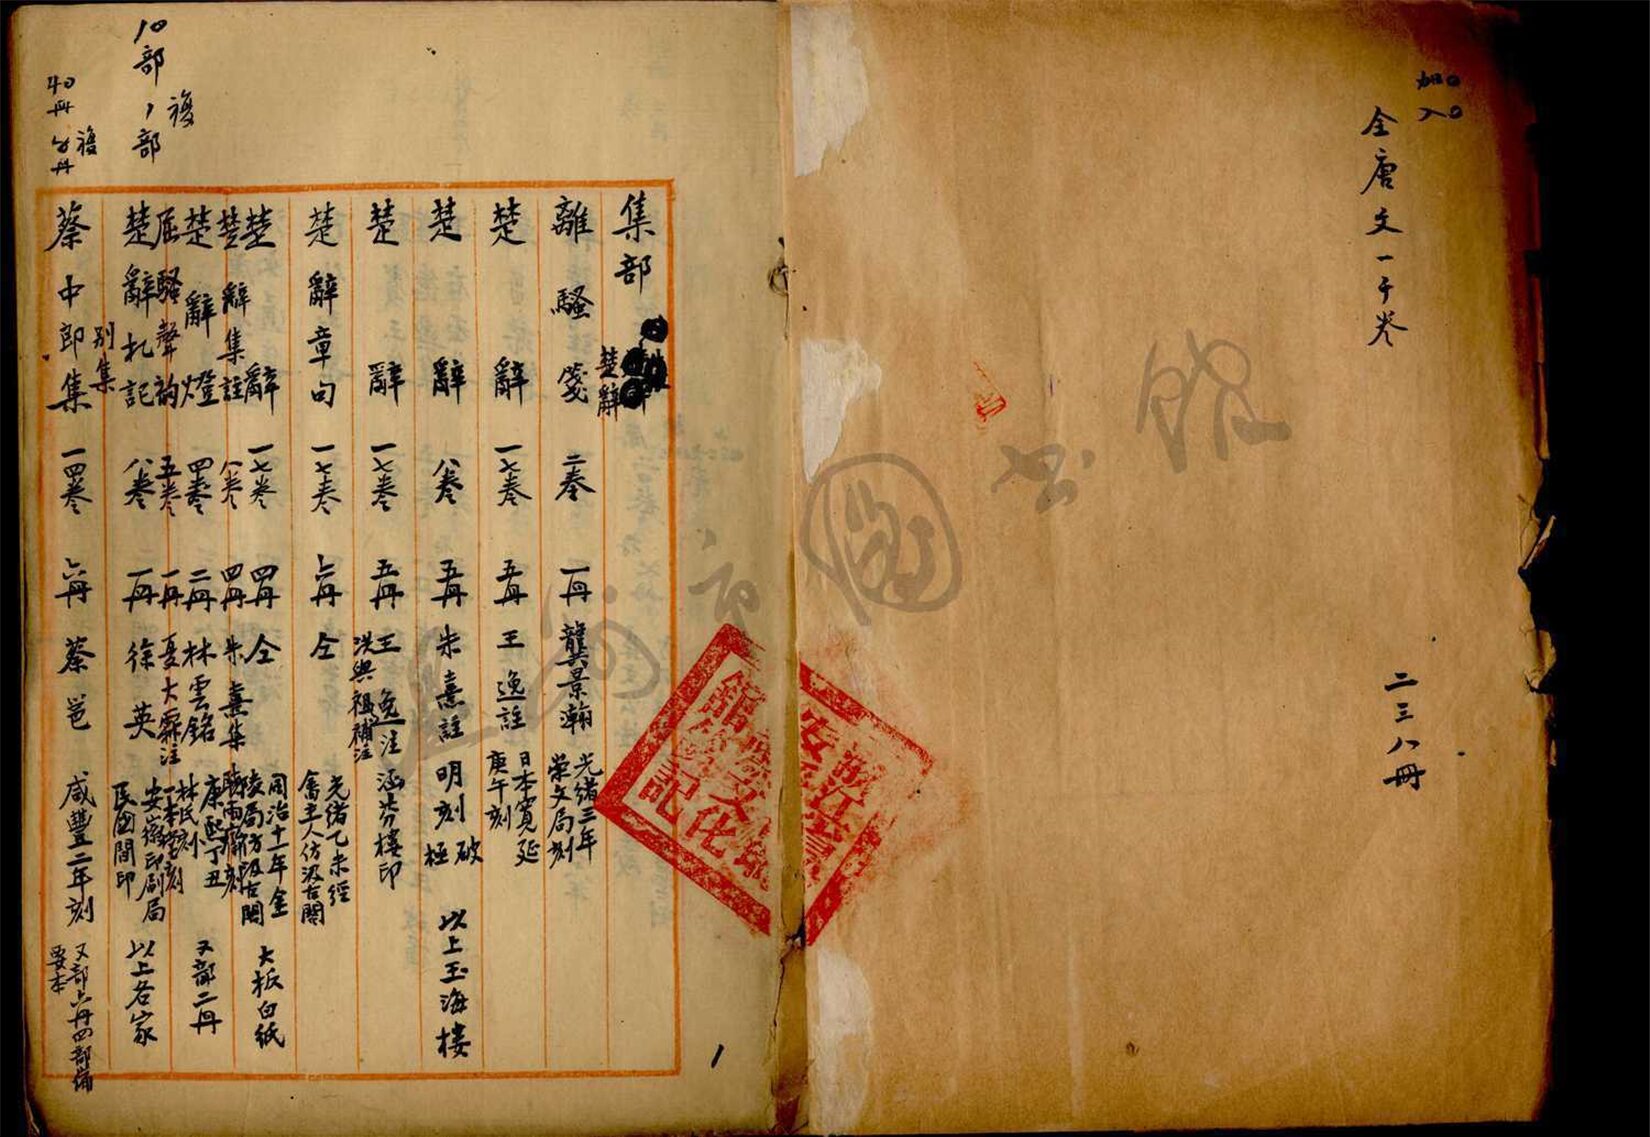 加入
全唐文一千卷 二三八冊
集部
楚辭
離騷箋 二卷 一冊 龔景瀚 光緒三年榮文局刻
楚辭 一七卷 五冊 王逸註 日本寬延庚午刻
楚辭 八卷 五冊 朱熹註 明刻 極破 以上玉海樓
楚辭 一七卷 五冊 王逸注 洪興祖補注 涵芬樓印
楚辭章句 一七卷 六冊 仝 光緒乙未經畬主人仿汲古閣
楚辭 一七卷 四冊 仝 同治十一年金陵局仿汲古閣 大板白紙
楚辭集註 八卷 四冊 朱熹集 聽雨齋刻
楚辭燈 四卷 二冊 林雲銘 康熙丁丑林氏刻 又部二冊
屈騷聲韵 五卷 一冊 夏大霖注 一本堂刻
楚辭札記 八卷 一冊 徐英 安徽印刷局民國間印 以上各家
別集
蔡中郎集 一四卷 六冊 蔡邕 咸豐二年刻 又部六冊四部備要本
10部 複1部
40冊 複6冊
1